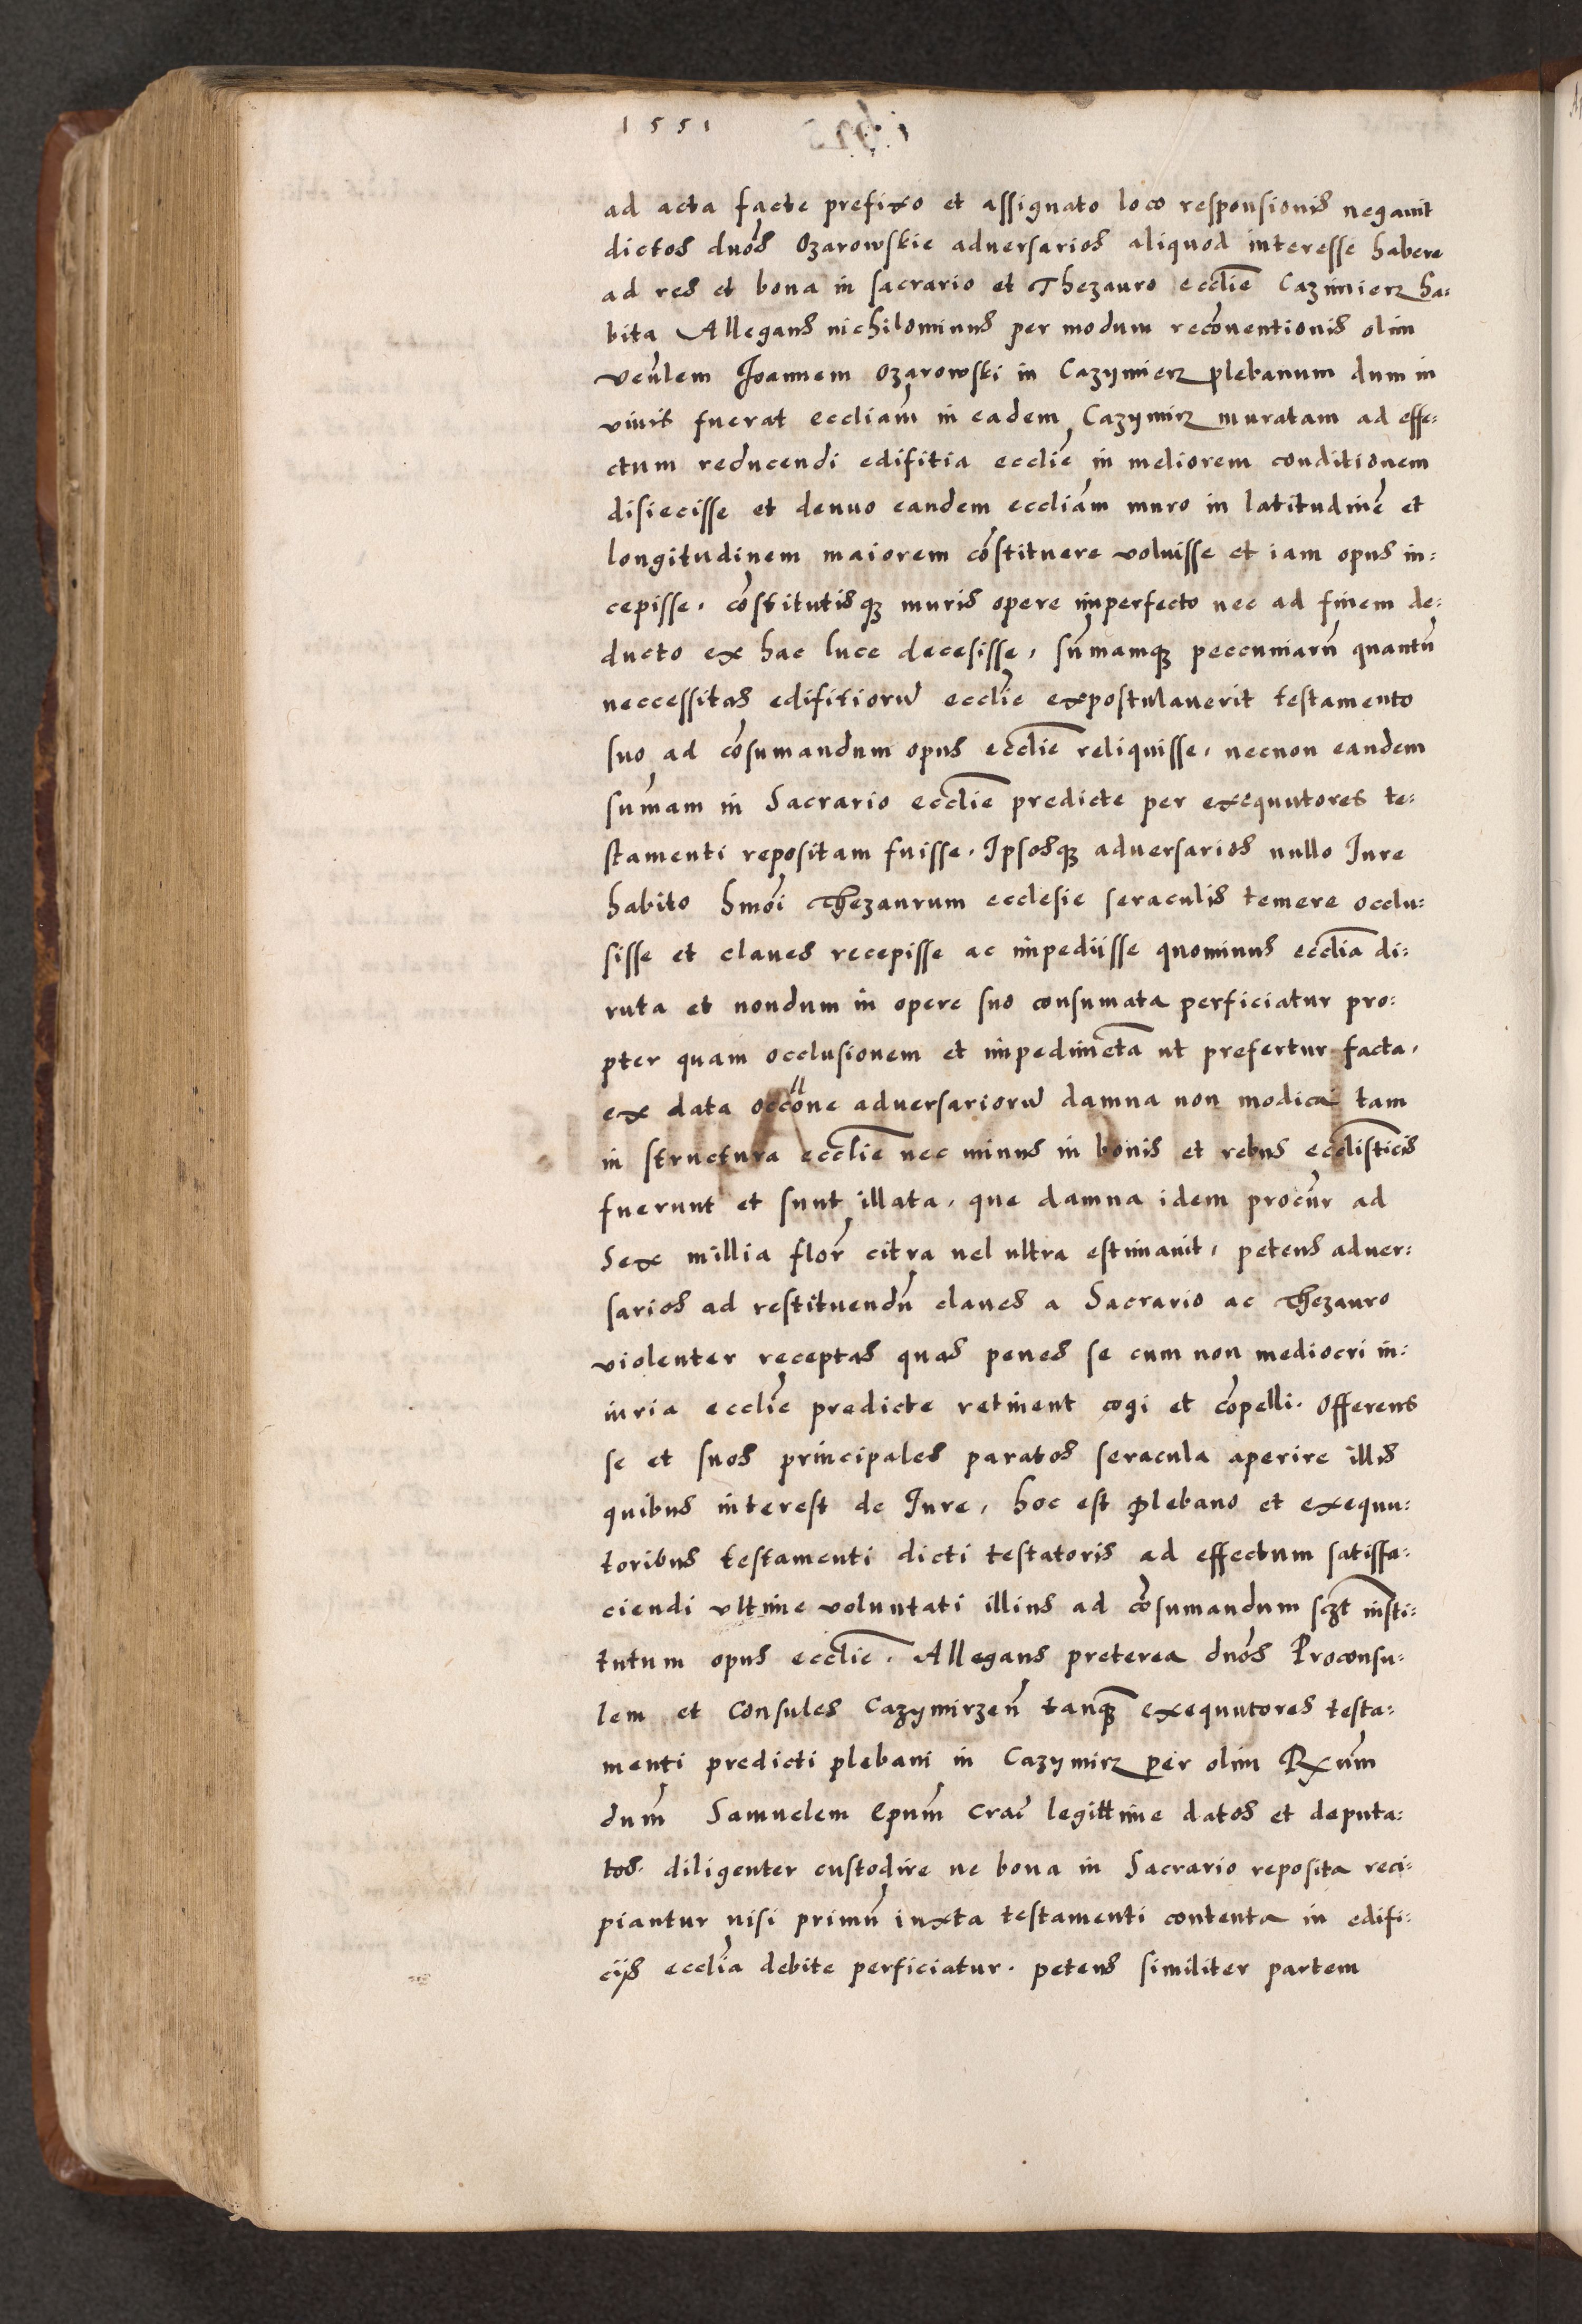 1551
ad acta facte prefixo et assignato loco responsionis negauit
dictos dnos Ozarowskie aduersarios aliquod interesse habere
ad res et bona in sacrario et Thezauro ecclie Cazimierz ha=
bita Allegans nichilominus per modum recōnentionis olim
venlem Joannem Ozarowski in Cazymierz plebanum dum in
viuis fuerat eccliam in eadem Cazymirz muratam ad effe=
ctum reducendi edifitia ecclie in meliorem conditionem
disiecisse et denuo eandem eccliam muro in latitudinē et
longitudinem maiorem cōstituere voluisse et iam opus in=
cepisse, cōstitutisqȝ muris opere imperfecto nec ad finem de=
ducto ex hac luce decesisse, sūmamqȝ peccuniarū quantū
neccessitas edifitiorū ecclie expostulauerit testamento
suo ad cōsumandum opus ecclie reliquisse, necnon eandem
sūmam in Sacrario ecclie predicte per exequutores te=
stamenti repositam fuisse. Ipsosqȝ aduersarios nullo Iure
habito hmōi Thezaurum ecclesie seraculis temere occlu=
sisse et claues recepisse ac impediisse quominus ecclia di=
ruta et nondum in opere suo consumata perficiatur pro=
pter quam occlusionem et impedimēta ut prefertur facta,
ex data occōne aduersariorū damna non modica tam
in structura ecclie nec minus in bonis et rebus ecclisticis
fuerunt et sunt illata, que damna idem procūr ad
Sex millia flor̄ citra uel ultra estimauit, petens aduer=
sarios ad restituendū claues a Sacrario ac Thezauro
violenter receptas quas penes se cum non mediocri in=
iuria ecclie predicte retinent cogi et cōpelli. Offerens
se et suos principales paratos seracula aperire illis
quibus interest de Iure, hoc est plebano et exequu=
toribus testamenti dicti testatoris ad effectum satisfa=
ciendi vltime voluntati illius ad cōsumandum sczt insti=
tutum opus ecclie. Allegans preterea dnos Proconsu=
lem et Consules Cazymirzeñ tanqȝ exequutores testa=
menti predicti plebani in Cazymirz per olim Rxum
dum Samuelem Epum Crac̄ legittime datos et deputa=
tos. diligenter custodire ne bona in Sacrario reposita reci=
piantur nisi primū iuxta testamenti contenta in edifi=
cijs ecclia debite perficiatur. petens similiter partem